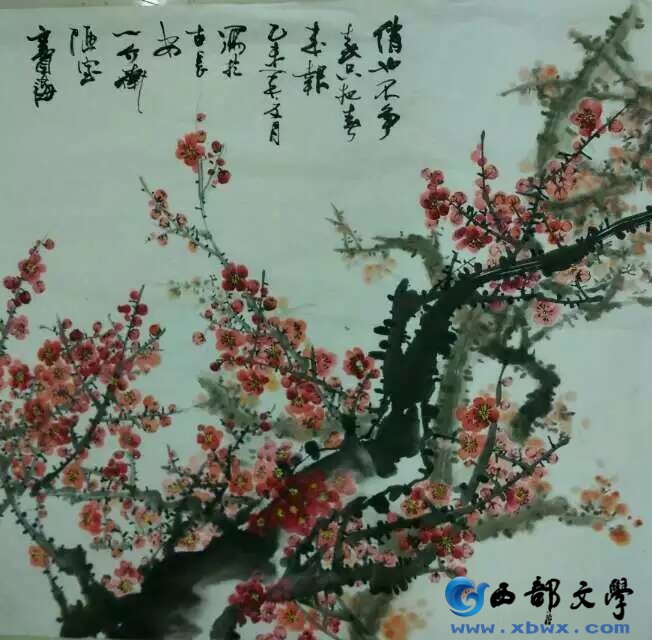 俏也不争
春只把春
来报
乙未月
写於
古长
安
一介斋
陋室
海
西部文學
www.xbwx.com